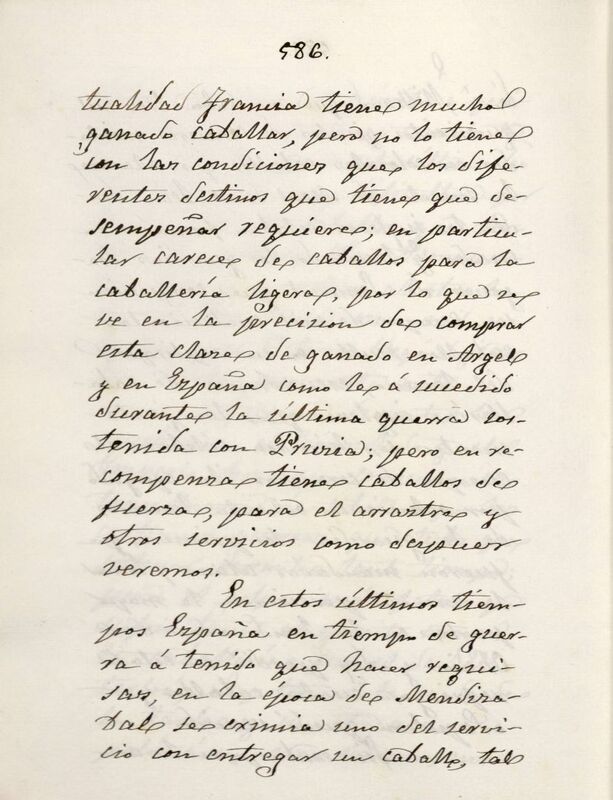 586.
tualidad Francia tiene mucho
ganado caballar, pero no lo tiene
con las condiciones que los dife-
rentes destinos que tiene que de-
sempeñar requiere; en particu-
lar carece de caballos para la
caballería ligera, por lo que se
ve en la precision de comprar
esta clase de ganado en Argel
y en España como le á sucedido
durante la última guerra sos-
tenida con Prusia; pero en re-
compenza tiene caballos de
fuerza, para el arrastre y
otros servicios como despues
veremos.
En estos últimos tiem-
pos España en tiempo de guer-
ra á tenido que hacer requi-
sas, en la época de Mendiza-
bal se eximia uno del servi-
cio con entregar un caballo, tal